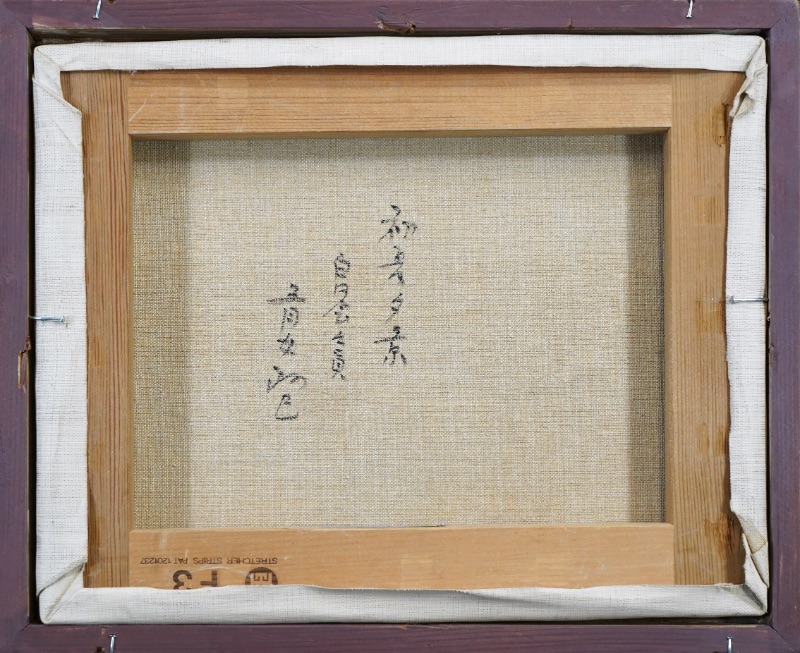 初夏夕景
白日会員
青
STRETCHER STRIPS PAT 1201237
F3